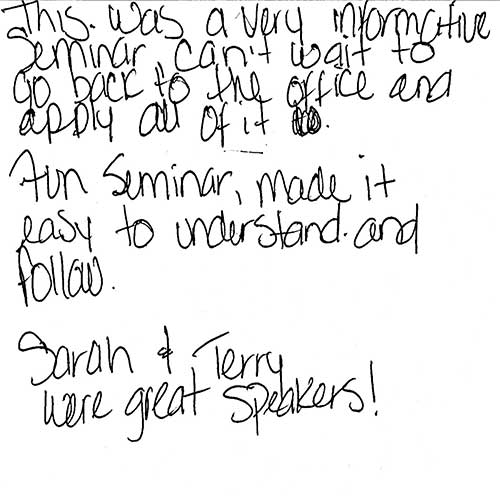 This. was a very informative
Seminar, can't wait to
go back to the office and
apply all of it
Fun Seminar, made it
easy to understand. and
follow.
Sarah & Terry
were great speakers!